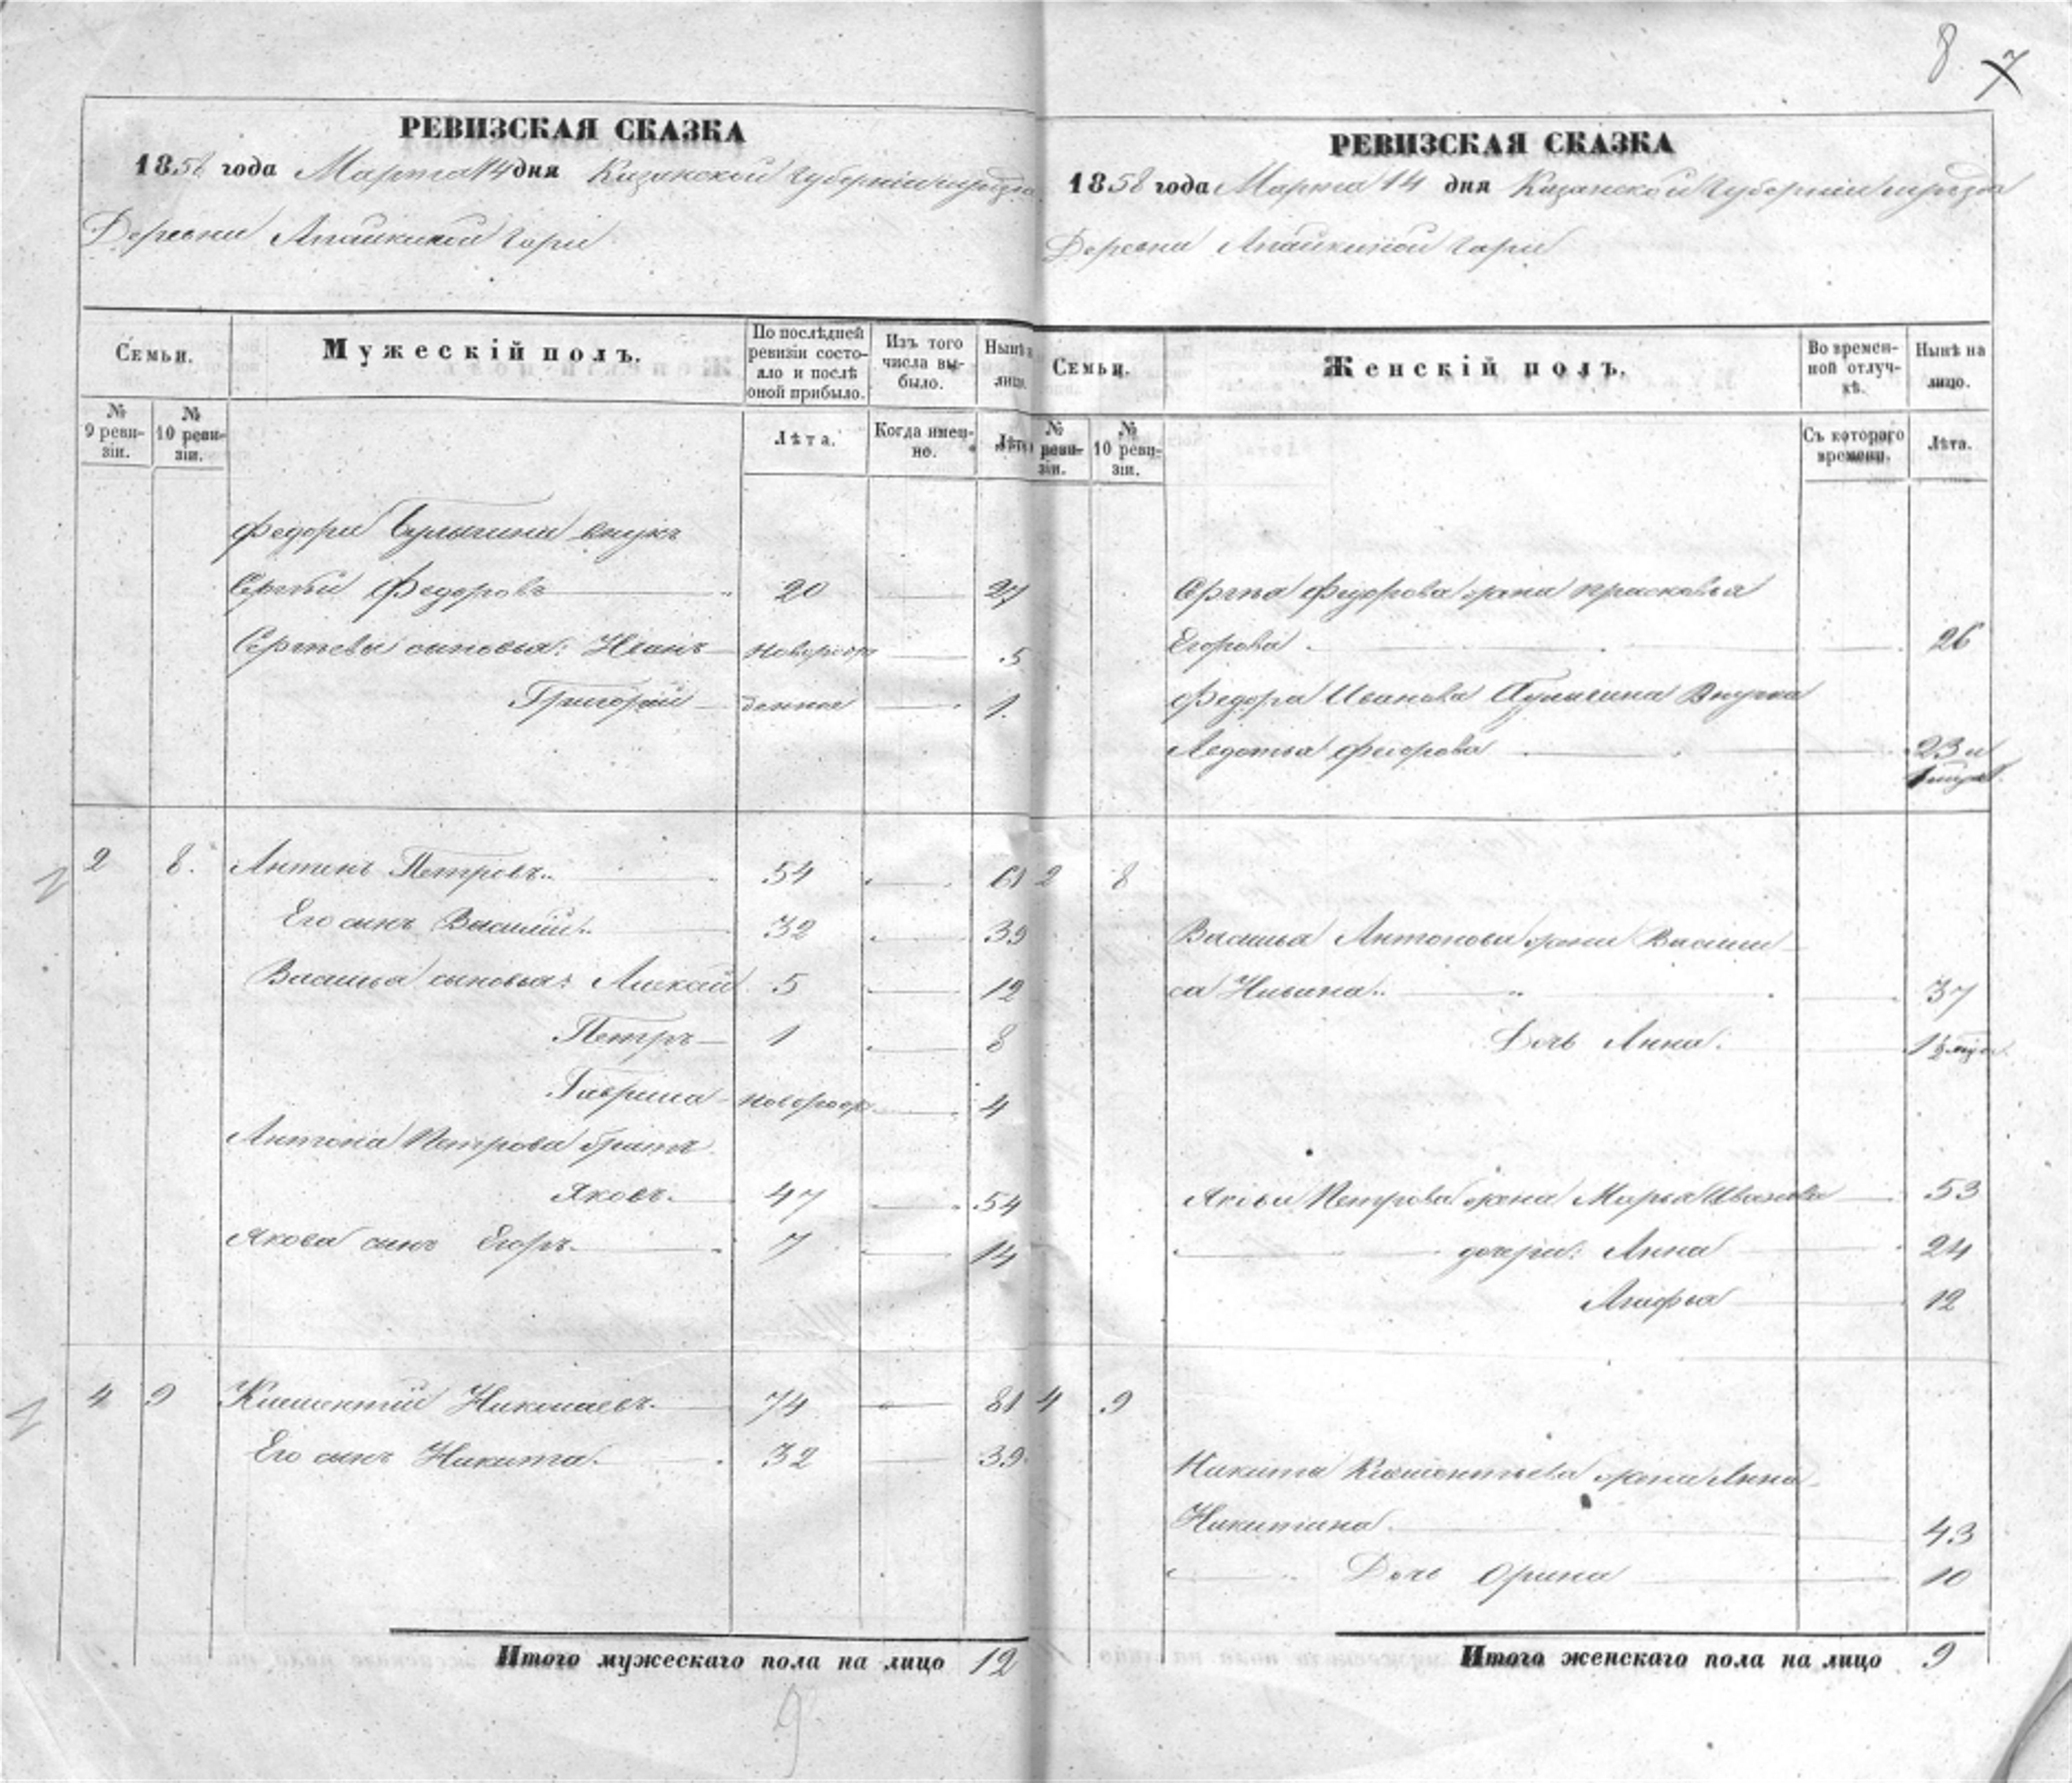 8 7
РЕВИЗСКАЯ СКАЗКА
1858 года Марта 14 дня Казанской Губерніи
Деревни Апайкиной Гари
Семьи.
Мужескій полъ.
По послѣдней ревизіи состо-
яло и послѣ оной прибыло.
Изъ того числа вы-
было.
Нынѣ на лицо.
№ 9 реви-
зіи.
№ 10 реви-
зіи.
Лѣта.
Когда имен-
но.
Лѣта
Федора Булыгина внукъ
Сергѣй Федоровъ 20 27
Сергѣевы сыновья: Иванъ новорож 5
Григорій денные 1.
2 8. Антонъ Петровъ 54 61
Его сынъ Василій 32 39
Василья сыновья: Алексѣй 5 12
Петръ 1 8
Гаврила новорож 4
Антона Петрова братъ
Яковъ 47 54
Якова сынъ Егоръ 7 14
4 9 Климентій Николаевъ 74 81
Его сынъ Никита 32 39
Итого мужескаго пола на лицо 12
9
РЕВИЗСКАЯ СКАЗКА
1858 года Марта 14 дня Казанской Губерніи
Деревни Апайкиной Гари
Семьи.
Женскій полъ.
Во времен-
ной отлуч-
кѣ.
Нынѣ на лицо.
№ реви-
зіи.
№ 10 реви-
зіи.
Съ котораго времени.
Лѣта.
Сергѣя Федорова жена Прасковья
Егорова 26
Федора Иванова Булыгина внучка
Авдотья Федорова 23 и
2 8
Василья Антонова жена Васили
са 37
Дочь Анна. 1
Якова Петрова жена Марья Иванова 53
дочери: Анна 24
Агафья 12
4 9
Никита Климентьева жена Анна
Никитина 43
Дочь Орина 10
Итого женскаго пола на лицо 9